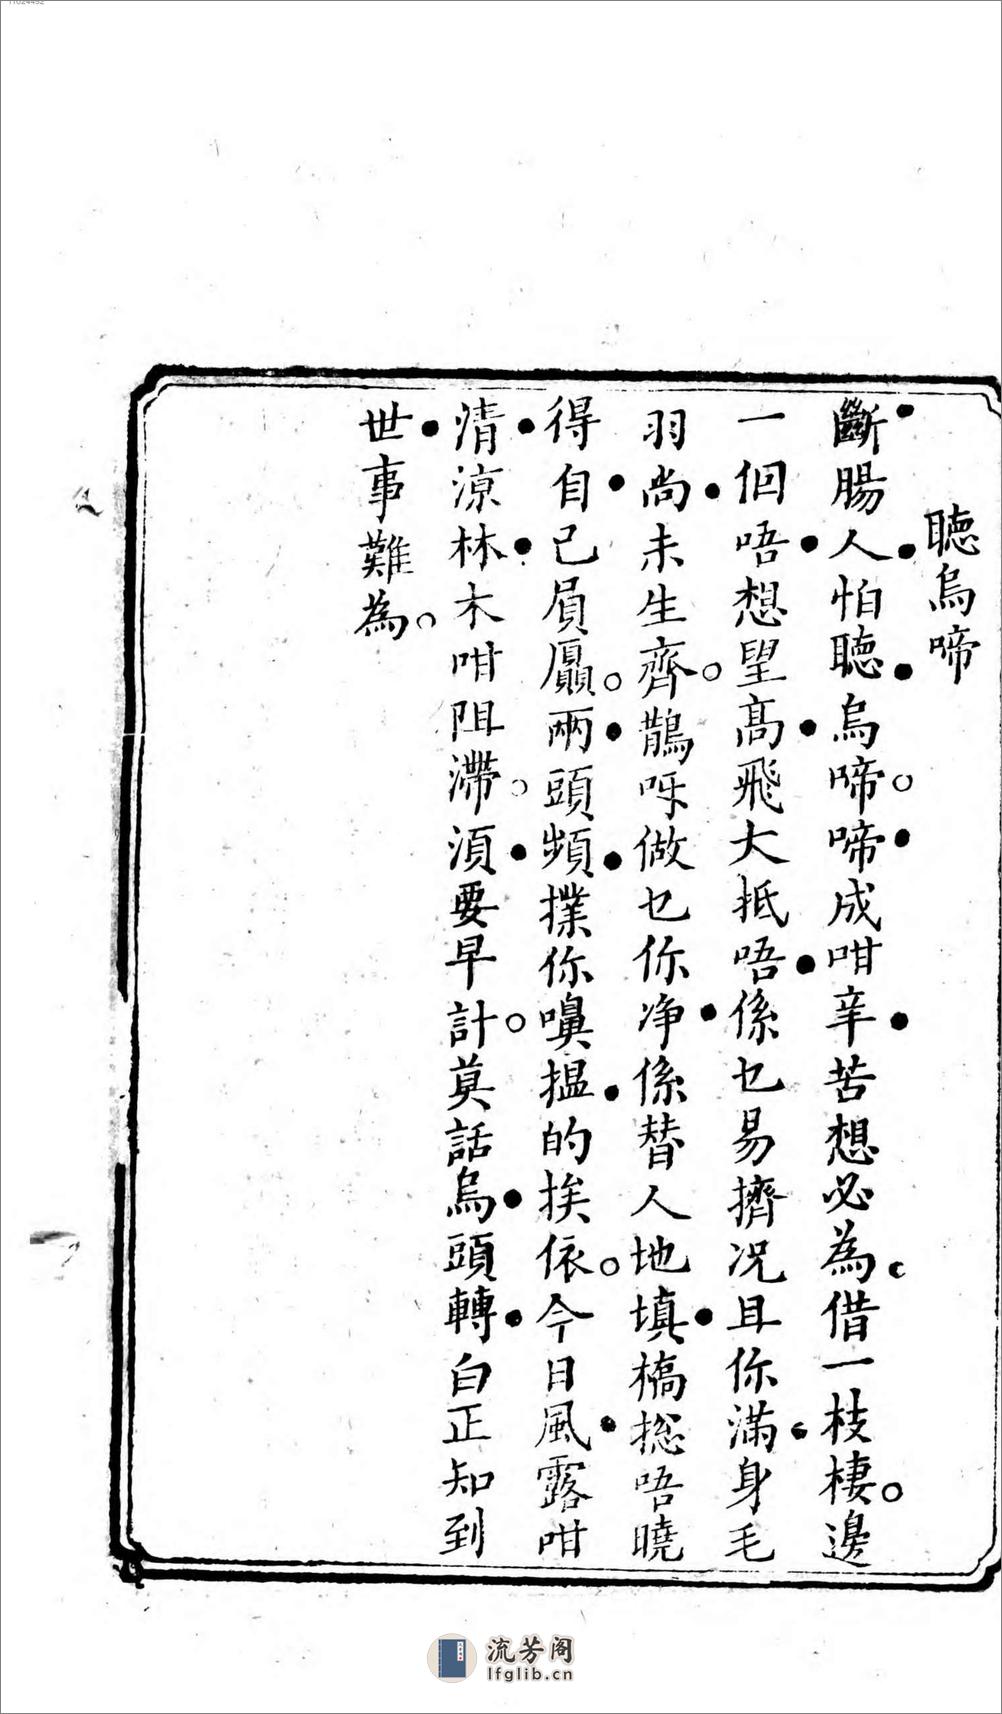 聴烏啼
斷腸人怕聴烏啼。啼成咁辛苦想必為借一枝棲。邊
一個唔想望高飛大抵唔係乜易擠况且你滿身毛
羽尚未生齊。鵲呀做乜你净係替人地填橋捴唔曉
得自己屓贔。兩頭頻撲你嗅揾的挨依。今日風露咁
清涼林木咁阻滯。須要早計。莫話烏頭轉白正知到
世事難為。
流芳阁
lfglib.cn
11024492